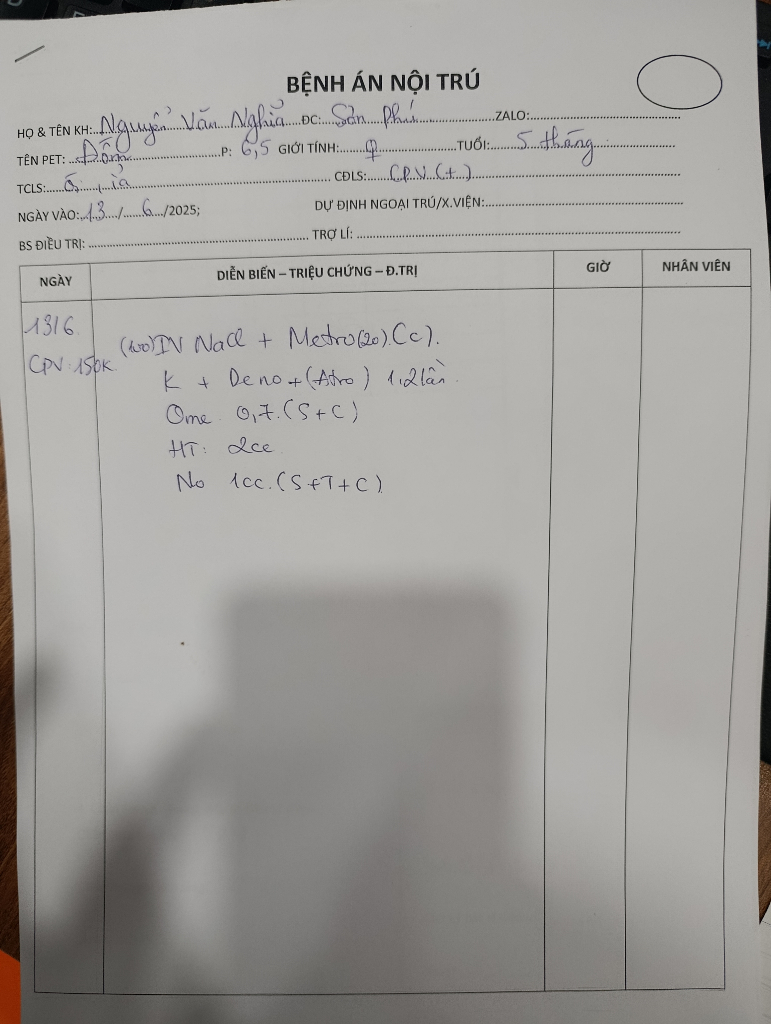 BỆNH ÁN NỘI TRÚ
HỌ & TÊN KH: Nguyễn Văn Nghĩa ĐC: Sơn Phú ZALO:
TÊN PET: Đốm P: 6,5 GIỚI TÍNH: ♀ TUỔI: 5 tháng
TCLS: ỉa CĐLS: CPV (+)
NGÀY VÀO: 13 / 6 /2025; DỰ ĐỊNH NGOẠI TRÚ/X.VIỆN:
BS ĐIỀU TRỊ: TRỢ LÍ:
NGÀY DIỄN BIẾN – TRIỆU CHỨNG – Đ.TRỊ GIỜ NHÂN VIÊN
13/6 (100) IV NaCl + Metro (20). (C).
CPV: 150K
K + Deno + (Atro) 1,2 lần
Ome 0,7. (S+C)
HT: 2cc
No 1cc. (S+T+C)